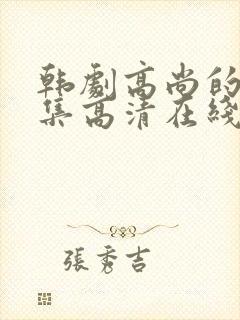 韩劇高尚的
集高清在綫
張秀吉